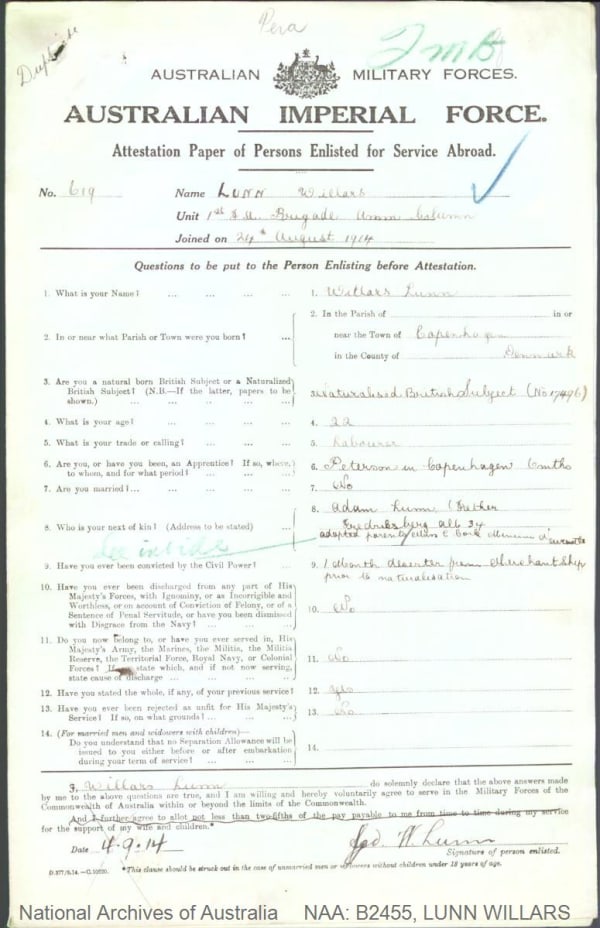 Pera
Duplicate
AUSTRALIAN MILITARY FORCES.
AUSTRALIAN IMPERIAL FORCE.
Attestation Paper of Persons Enlisted for Service Abroad.
No. 619 Name LUNN Willars
Unit 1st F.A. Brigade Amm Column
Joined on 24th August 1914
Questions to be put to the Person Enlisting before Attestation.
1. What is your Name? ... ... ... 1. Willars Lunn
2. In or near what Parish or Town were you born? ... 2. In the Parish of in or
near the Town of Copenhagen
in the County of Denmark
3. Are you a natural born British Subject or a Naturalized British Subject? (N.B.—If the latter, papers to be shown.) ... ... ... 3. Naturalised British Subject (No 17496)
4. What is your age? ... ... ... 4. 22
5. What is your trade or calling? ... ... 5. Labourer
6. Are you, or have you been, an Apprentice? If so, where, to whom, and for what period? ... ... 6. Peterson in Copenhagen 6 mths
7. Are you married? ... ... ... 7. No
8. Who is your next of kin? (Address to be stated) ... 8. Adam Lunn
Fredriksberg alle 34
adopted parents
See inside
9. Have you ever been convicted by the Civil Power? ... 9. 1 Month deserter from Merchant Ship
prior to naturalisation
10. Have you ever been discharged from any part of His Majesty's Forces, with Ignominy, or as Incorrigible and Worthless, or on account of Conviction of Felony, or of a Sentence of Penal Servitude, or have you been dismissed with Disgrace from the Navy? ... ... ... 10. No
11. Do you now belong to, or have you ever served in, His Majesty's Army, the Marines, the Militia, the Militia Reserve, the Territorial Force, Royal Navy, or Colonial Forces? If so, state which, and if not now serving, state cause of discharge ... ... ... 11. No
12. Have you stated the whole, if any, of your previous service? 12. yes
13. Have you ever been rejected as unfit for His Majesty's Service? If so, on what grounds? ... ... ... 13. No
14. (For married men and widowers with children)—
Do you understand that no Separation Allowance will be issued to you either before or after embarkation during your term of service? ... ... 14.
I, Willars Lunn do solemnly declare that the above answers made
by me to the above questions are true, and I am willing and hereby voluntarily agree to serve in the Military Forces of the
Commonwealth of Australia within or beyond the limits of the Commonwealth.
And I further agree to allot not less than two-fifths of the pay payable to me from time to time during my service
for the support of my wife and children.*
Date 4.9.14 W. Lunn
Signature of person enlisted.
*This clause should be struck out in the case of unmarried men or widowers without children under 18 years of age.
National Archives of Australia NAA: B2455, LUNN WILLARS